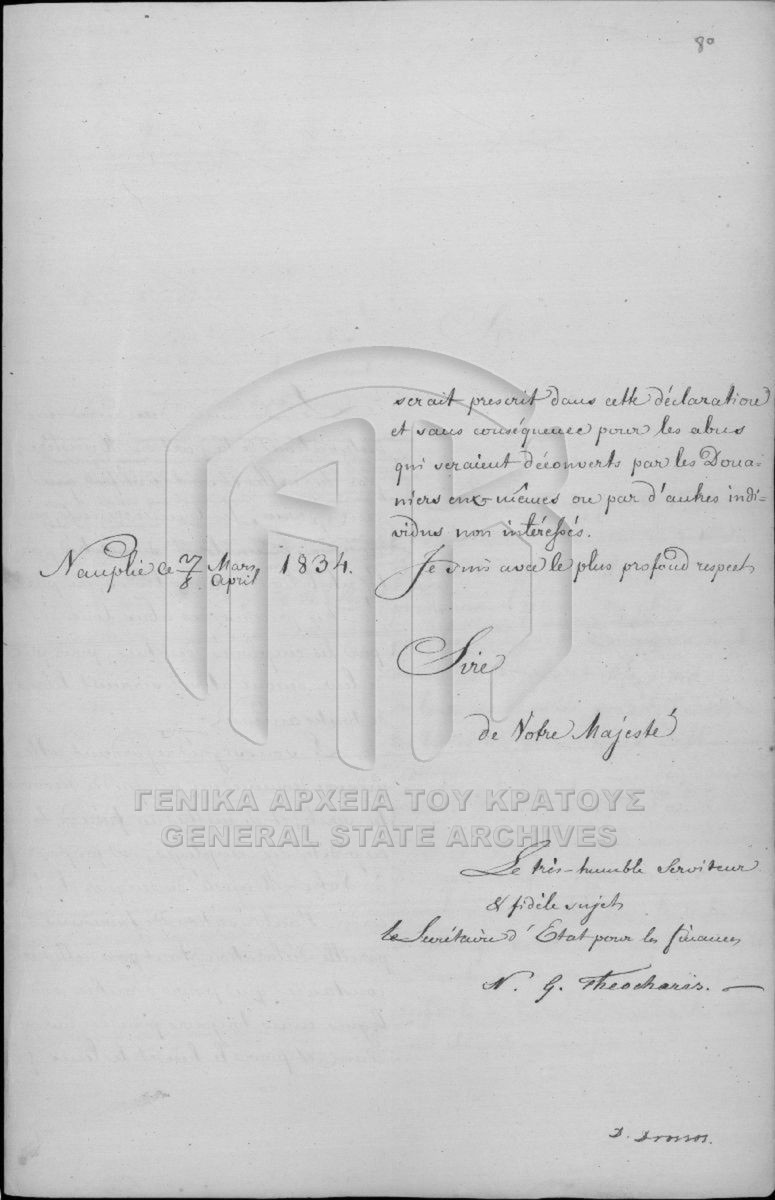 80
serait prescrit dans cette déclaration
et sans conséquence pour les abus
qui seraient découverts par les Doua-
niers eux-mêmes ou par d'autres indi-
vidus non intéressés.
Nauplie ce 27/8 Mars/April 1834.
Je suis avec le plus profond respect
Sire
de Votre Majesté
ΓΕΝΙΚΑ ΑΡΧΕΙΑ ΤΟΥ ΚΡΑΤΟΥΣ
GENERAL STATE ARCHIVES
Le très-humble Serviteur
& fidèle sujet
le Secrétaire d'Etat pour les finances
N. G. Theocharis.
D. Drossos.